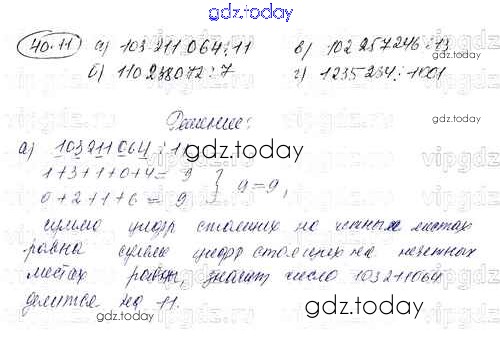 gdz.today
40.11 а) 103 211 064 ⋮ 11 в) 102 257 246 ⋮ 13
б) 110 238 072 ⋮ 7 г) 1235 234 ⋮ 1001
Решение:
gdz.today
а) 103211064 ⋮ 11
1+3+1+0+4= 9
0+2+1+6 = 9 } 9=9,
сумма цифр стоящих на четных местах
равна сумме цифр стоящих на нечетных
местах равны, значит число 103211064
делится на 11.
gdz.today
gdz.today